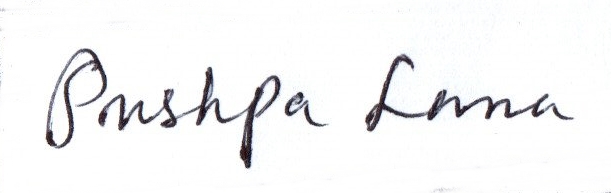 Pushpa Lama